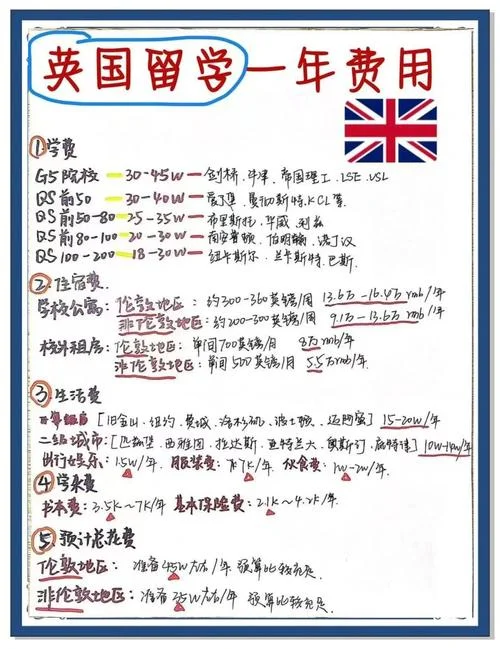 英国留学一年费用
①学费
G5院校 — 30-45W — 剑桥、牛津、帝国理工、LSE、USL
QS前50 — 30-40W — 爱丁堡、曼彻斯特、KCL等
QS前50-80 — 25-35W — 布里斯托、华威、利兹
QS前80-100 — 20-30W — 南安普顿、伯明翰、诺丁汉
QS100-200 — 18-30W — 纽卡斯尔、兰卡斯特、巴斯
②住宿费
学校公寓: 伦敦地区: 约300-360英镑/周 13.6万-16.4万rmb/年
非伦敦地区: 约200-300英镑/周 9.1万-13.6万rmb/年
校外租房: 伦敦地区: 单间700英镑/月 8万rmb/年
非伦敦地区: 单间500英镑/月 5.5万rmb/年
③生活费
[旧金山、纽约、费城、洛杉矶、波士顿、迈阿密] 15-20W/年
二级城市: [匹兹堡、西雅图、拉达斯、亚特兰大、奥斯汀、底特律] 10W-14W/年
出行娱乐: 1.5W/年 服装费: 7K/年 伙食费: 1W-2W/年
④学杂费
书本费: 3.5K~7K/年 基本保险费: 2.1K~4.2K/年
⑤预计总花费
伦敦地区: 准备45W左右/年 预算比较充足
非伦敦地区: 准备35W左右/年 预算比较充足